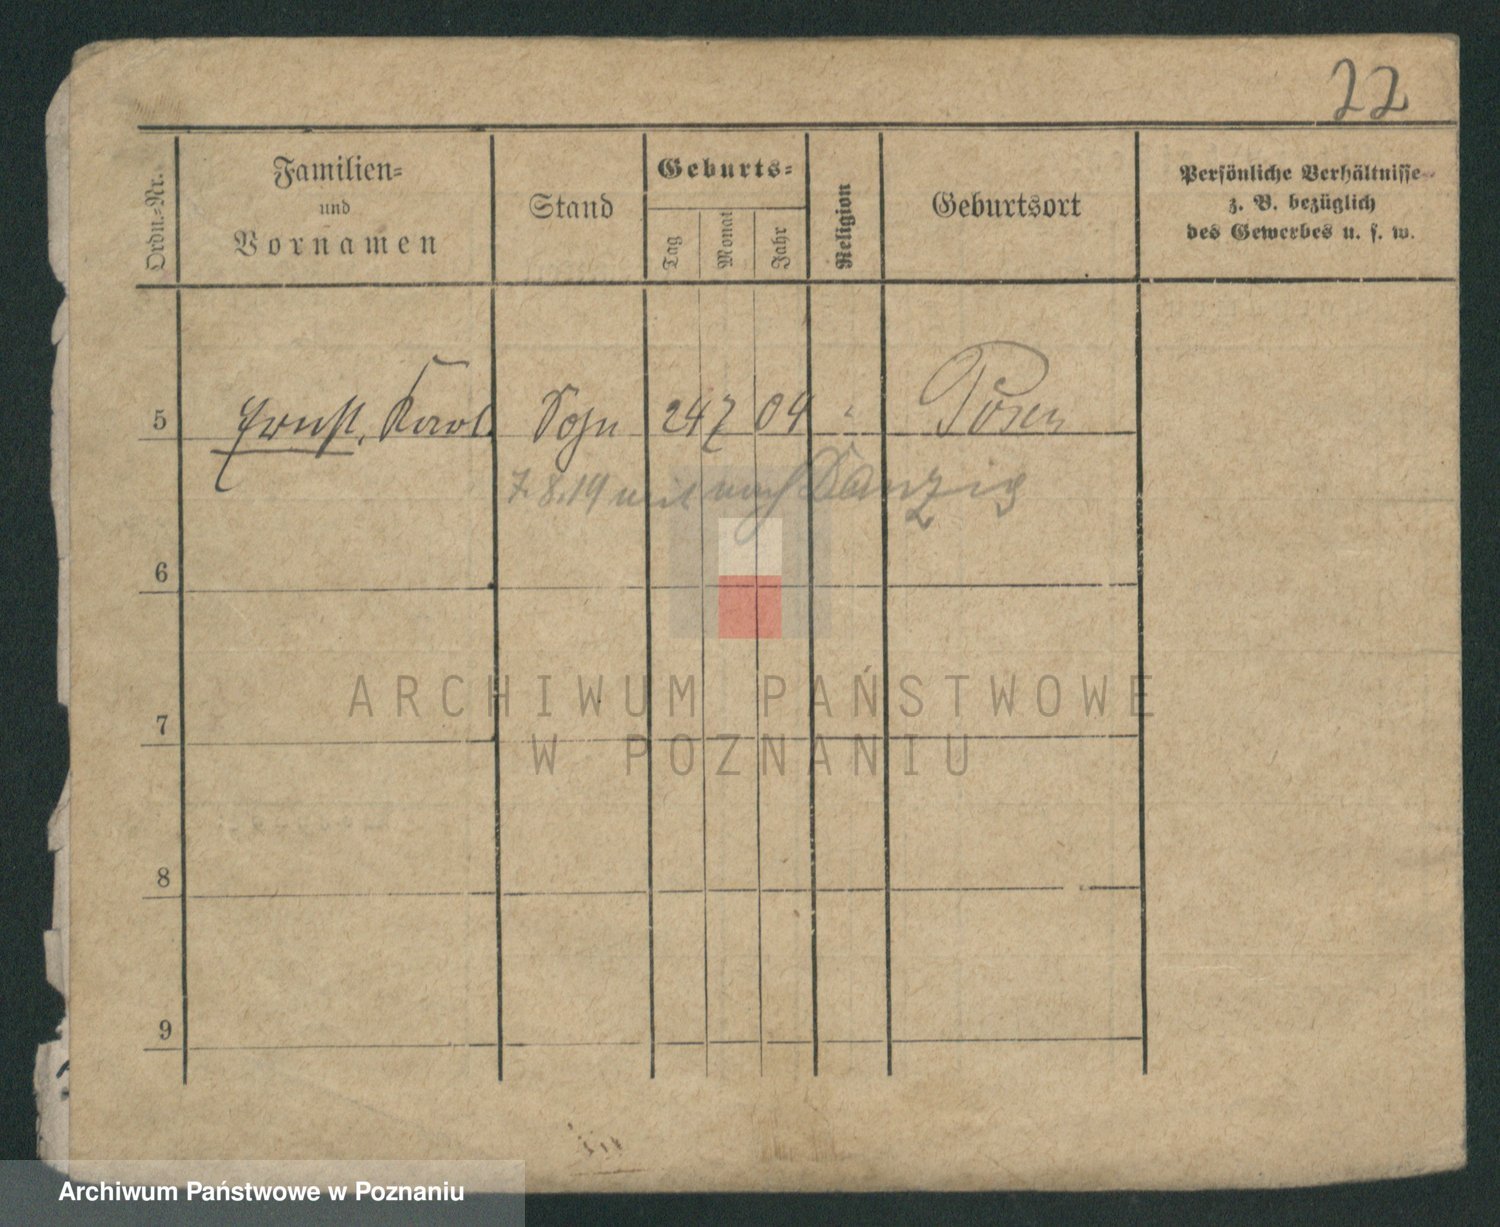 22
Ordn.-Nr.
Familien-
und
Vornamen
Stand
Geburts-
Tag
Monat
Jahr
Religion
Geburtsort
Persönliche Verhältnisse
z. B. bezüglich
des Gewerbes u. s. w.
5 Ernst, Karl Sohn 24 7 04 " Posen
7.8.19 mit nach Danzig
6
ARCHIWUM PAŃSTWOWE
7
W POZNANIU
8
9
Archiwum Państwowe w Poznaniu